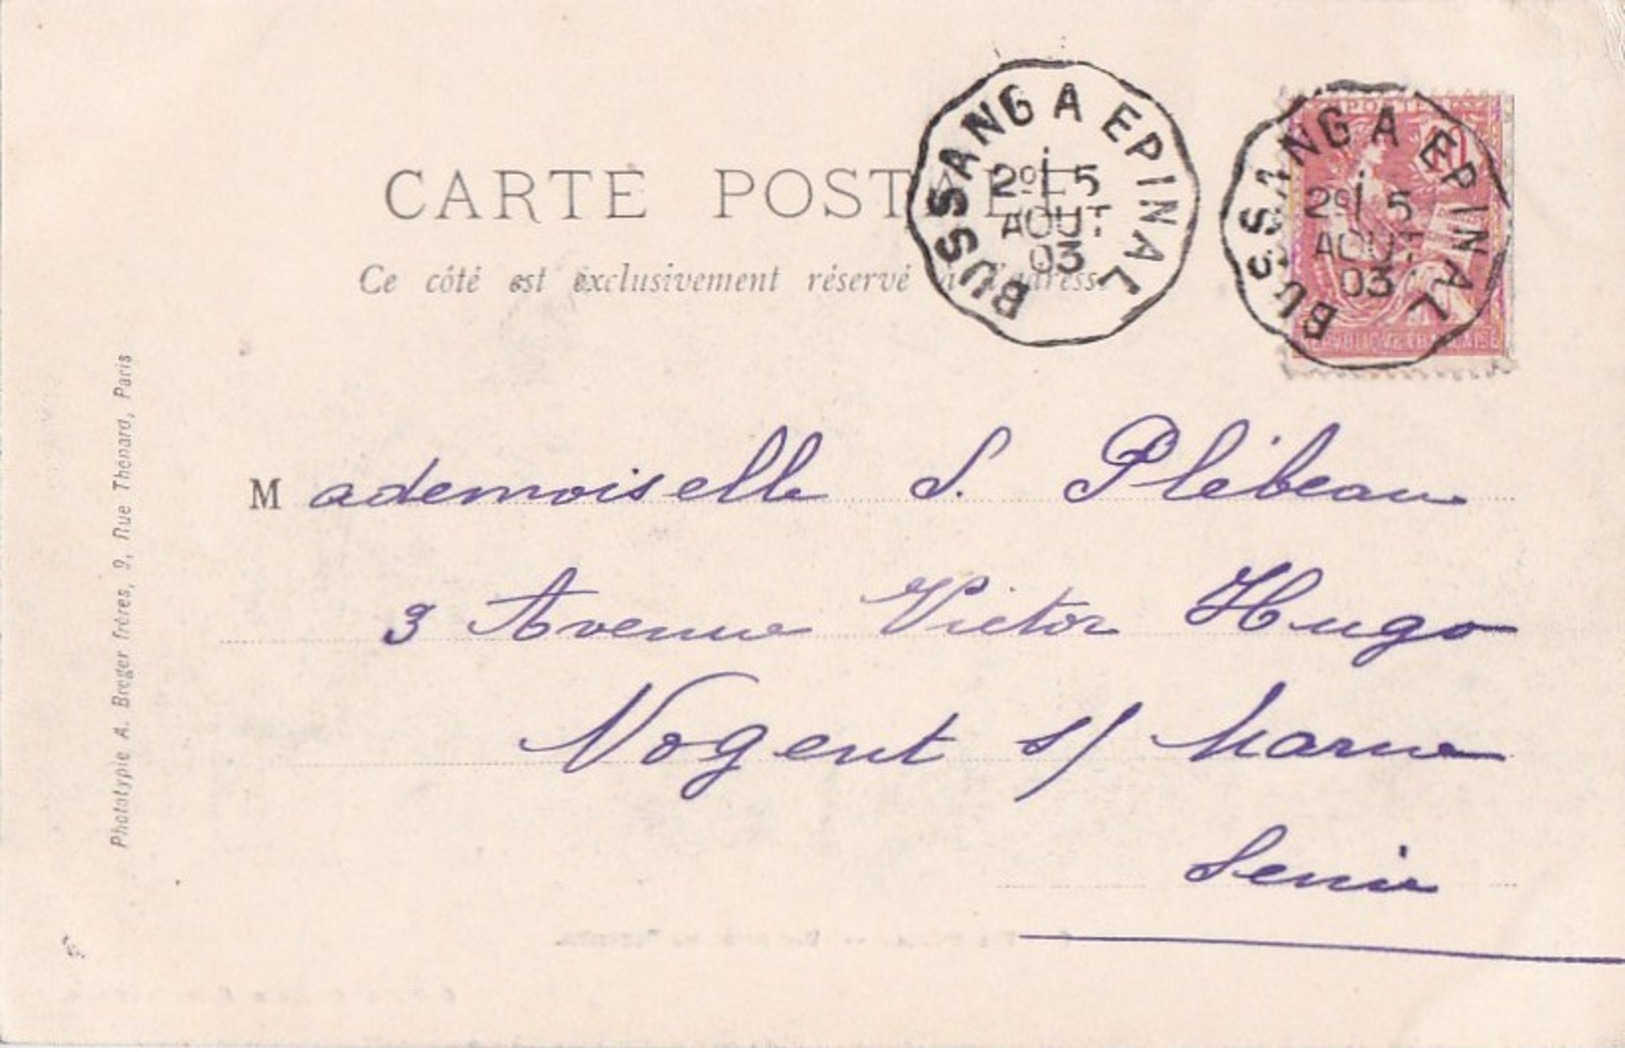 CARTE POSTALE
Ce côté est exclusivement réservé à l'adresse
BUSSANG A EPINAL
2º 5
AOUT
03
POSTES
10
REPUBLIQUE FRANÇAISE
BUSSANG A EPINAL
2º 5
AOUT
03
Mademoiselle S. Plébeau
3 Avenue Victor Hugo
Nogent s/ Marne
Seine
Phototypie A. Breger frères, 9, Rue Thénard, Paris